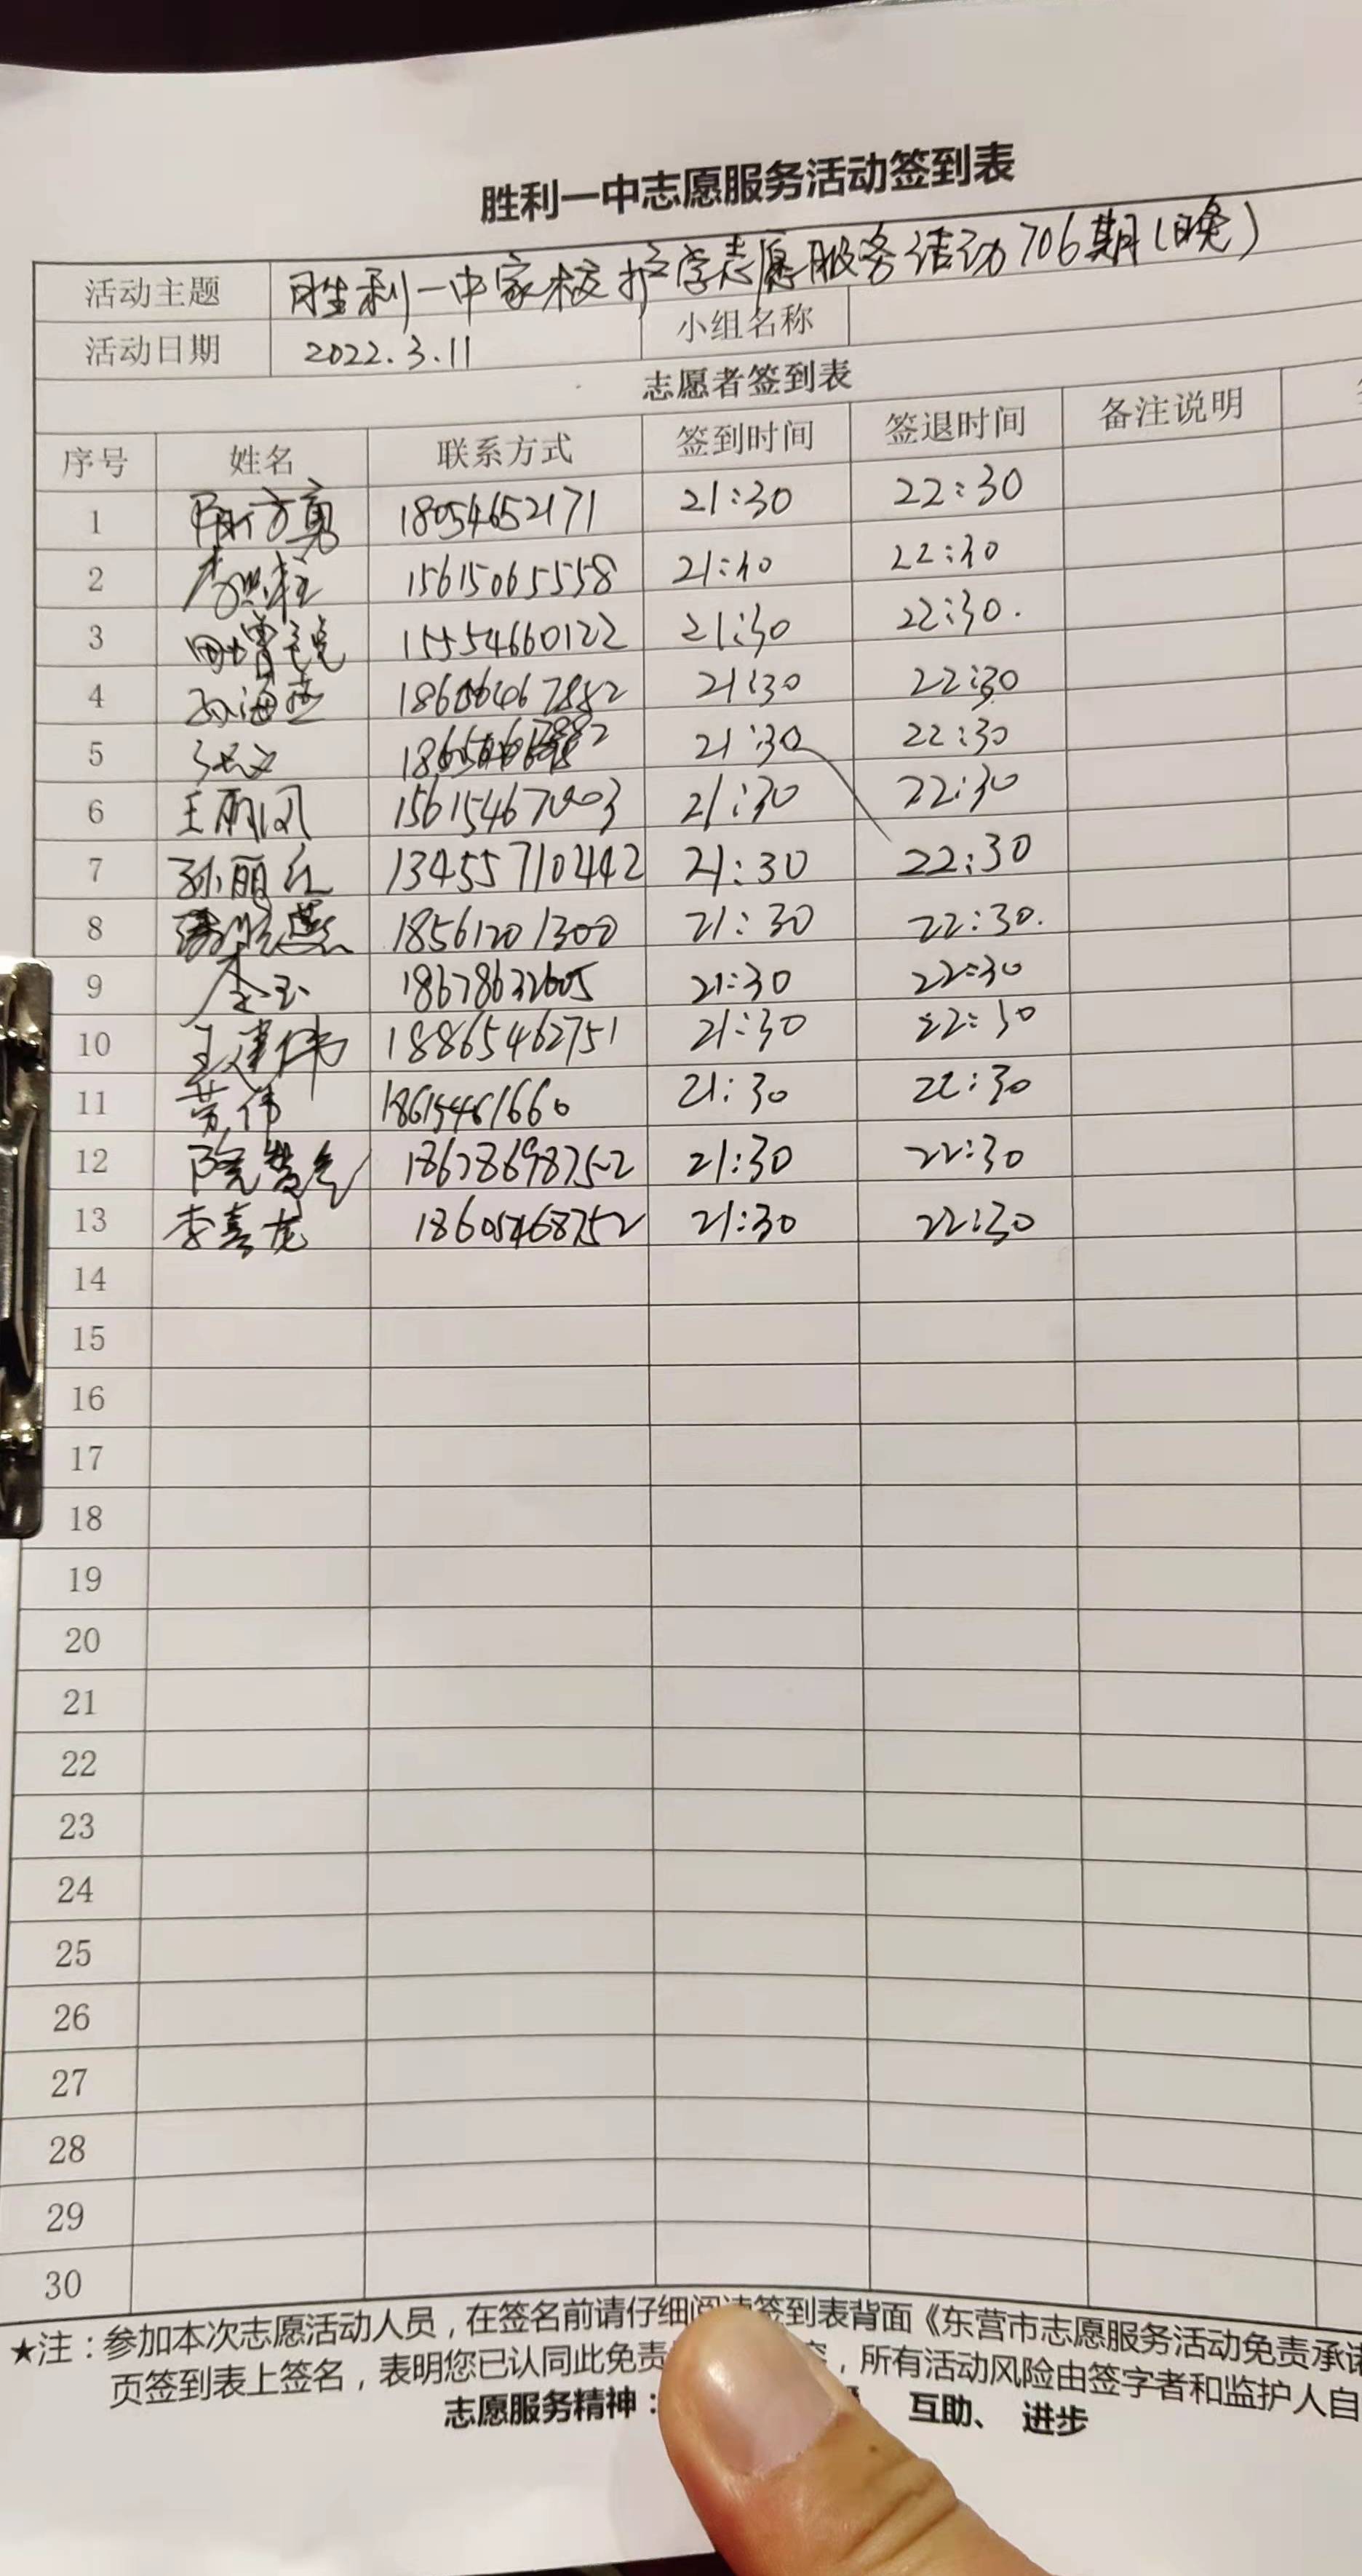 胜利一中志愿服务活动签到表
活动主题 胜利一中家校护学志愿服务活动706期(晚)
活动日期 2022.3.11 小组名称
志愿者签到表
序号 姓名 联系方式 签到时间 签退时间 备注说明
1 18054652171 21:30 22:30
2 15615065558 21:30 22:30
3 15554660122 21:30 22:30.
4 孙海燕 21:30 22:30
5 21:30 22:30
6 王丽凤 15615467003 21:30 22:30
7 孙丽红 13455710442 21:30 22:30
8 18561201300 21:30 22:30.
9 李玉 18678632605 21:30 22:30
10 王建伟 18865462751 21:30 22:30
11 劳伟 18615461660 21:30 22:30
12 18678698752 21:30 22:30
13 李喜龙 18605468752 21:30 22:30
14
15
16
17
18
19
20
21
22
23
24
25
26
27
28
29
30
★注：参加本次志愿活动人员，在签名前请仔细阅读签到表背面《东营市志愿服务活动免责承诺
页签到表上签名，表明您已认同此免责 ，所有活动风险由签字者和监护人自
志愿服务精神： 互助、 进步